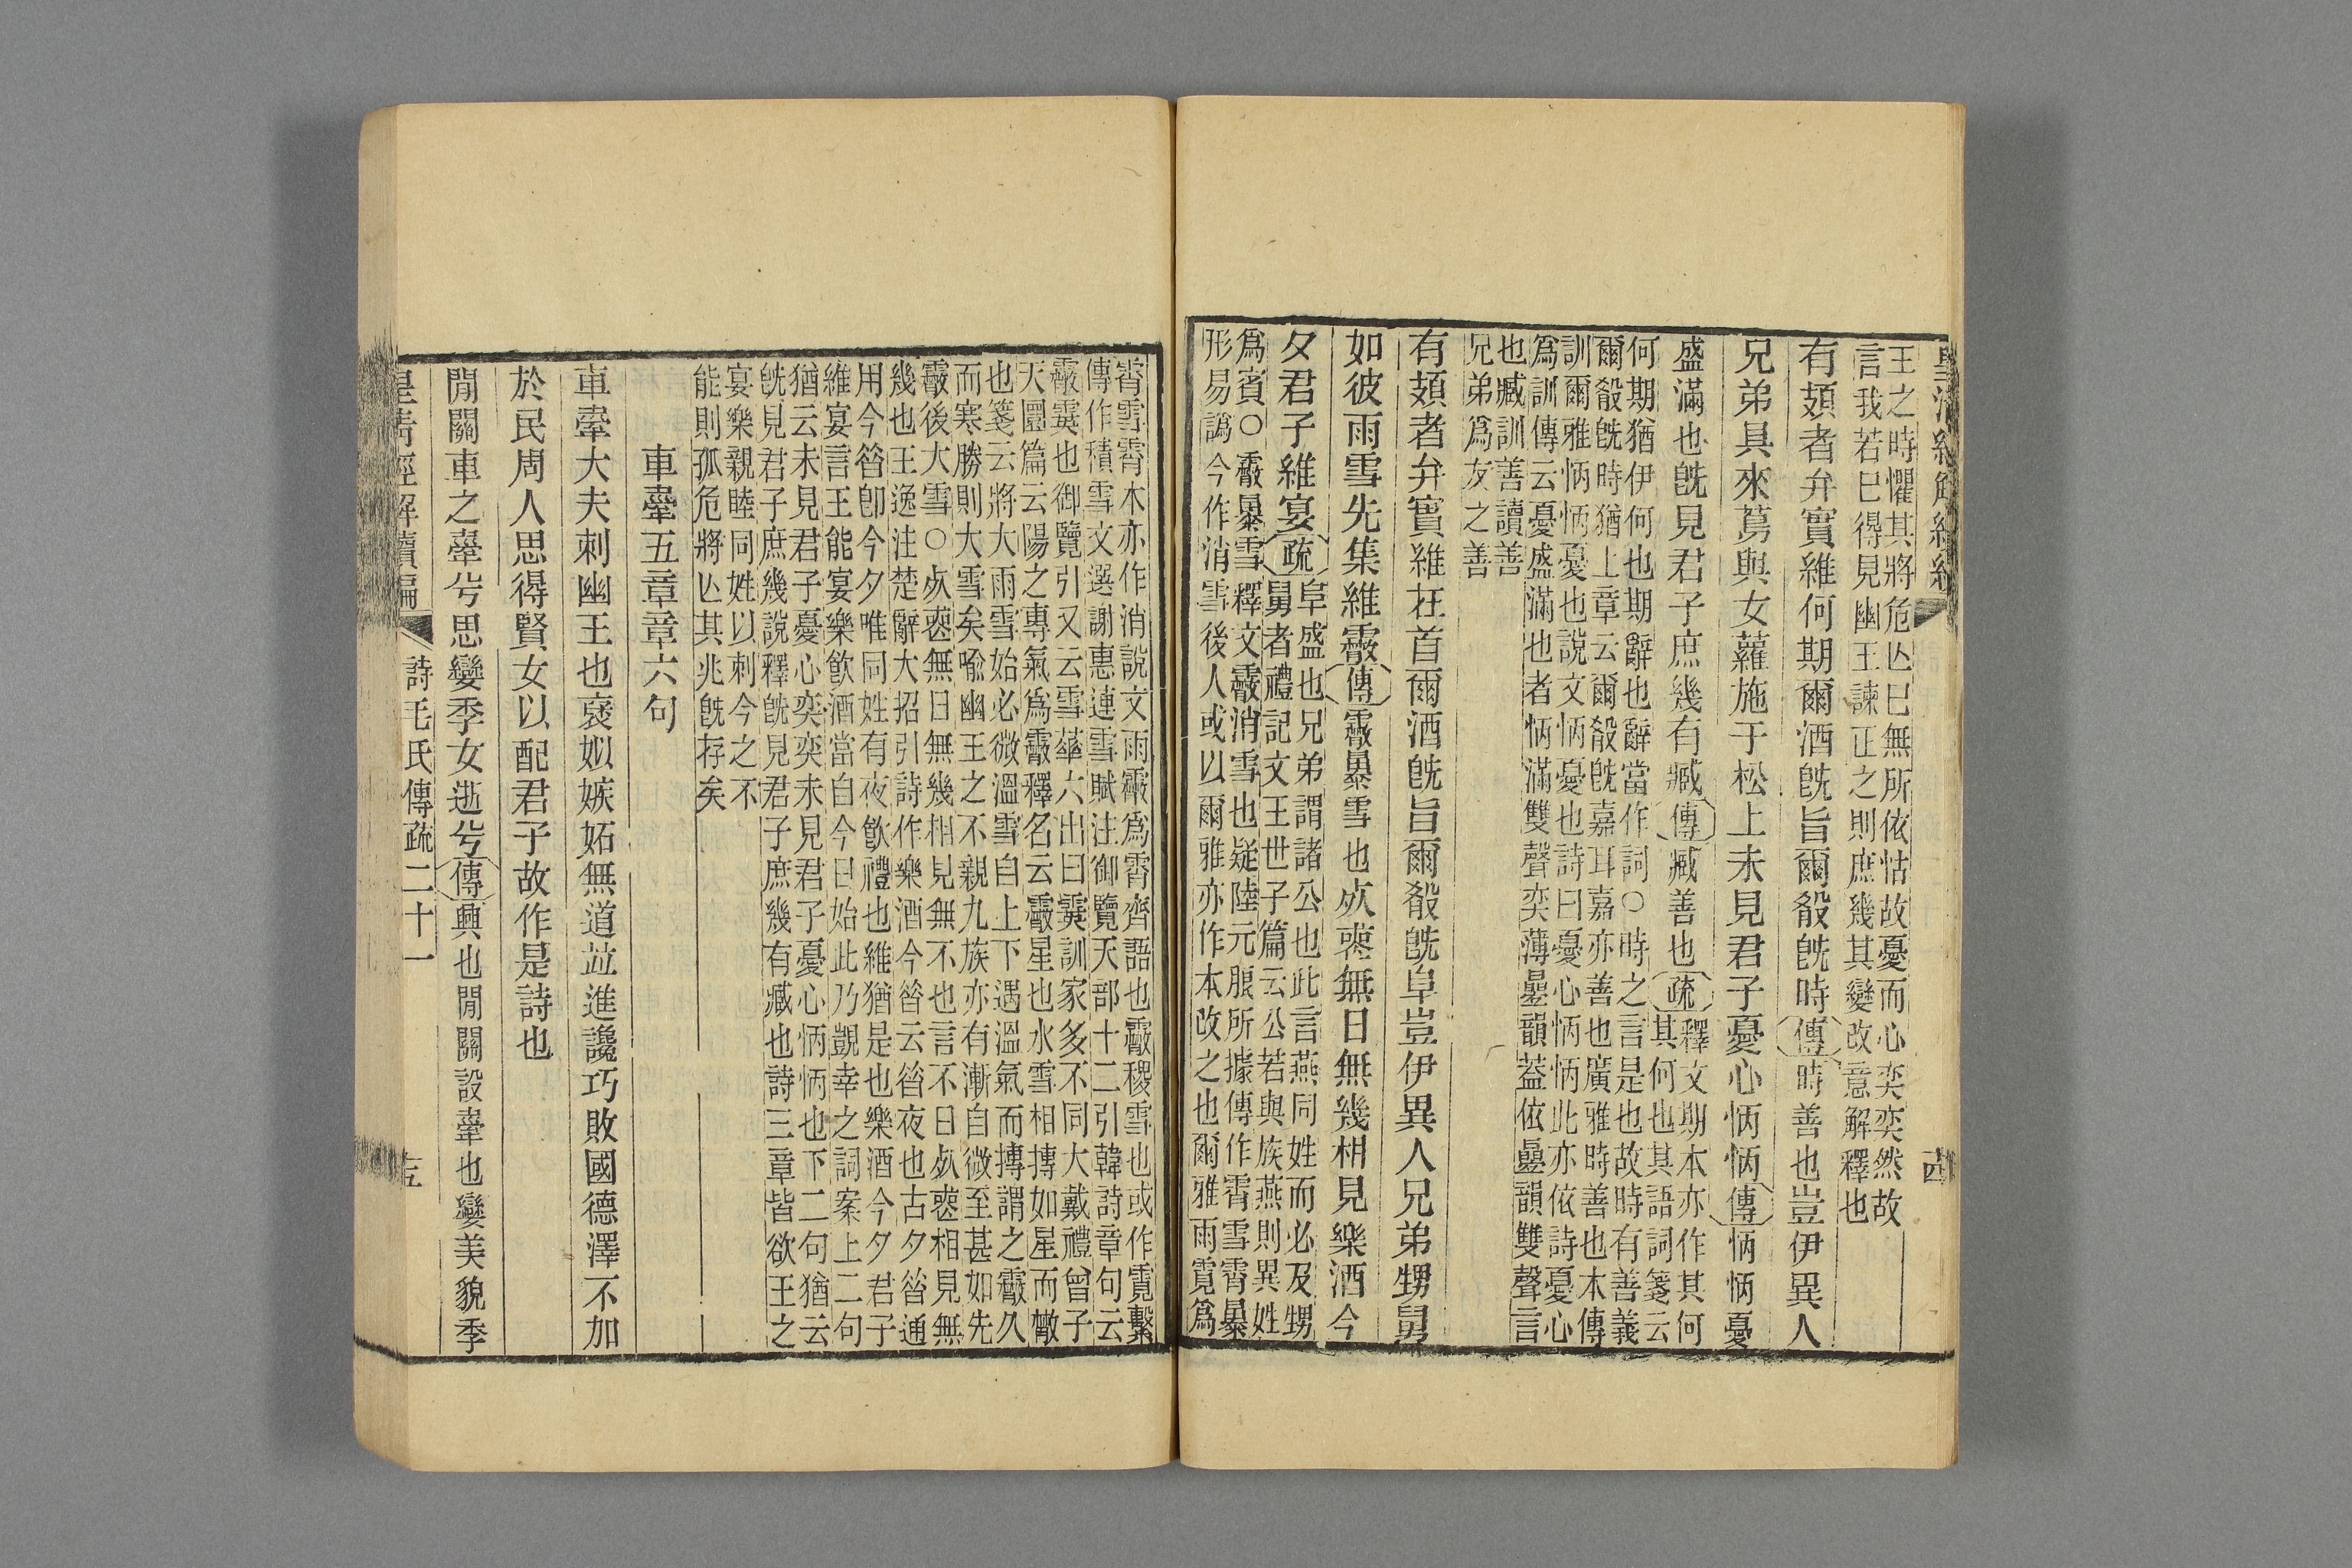 皇清經解續編
王之時懼其將危亾巳無所依怙故憂而心奕奕然故
言我若巳得見幽王諫正之則庶幾其變改意解釋也
有頍者弁實維何期爾酒旣旨爾殽旣時傳時善也豈伊異人
兄弟具來蔦與女蘿施于松上未見君子憂心怲怲傳怲怲憂
盛滿也旣見君子庶幾有臧傳臧善也疏釋文期本亦作其何
其何也其語詞箋云
何期猶伊何也期辭也辭當作詞○時之言是也故時有善義
爾殽旣時猶上章云爾殽旣嘉耳嘉亦善也廣雅時善也本傳
訓爾雅怲怲憂也說文怲憂也詩曰憂心怲怲此亦依詩憂心
爲訓傳云憂盛滿也者怲滿雙聲奕薄曡韻葢依曡韻雙聲言
也臧訓善讀善
兄弟爲友之善
有頍者弁實維在首爾酒旣旨爾殽旣阜豈伊異人兄弟甥舅
如彼雨雪先集維霰傳霰暴雪也㱙䘮無日無幾相見樂酒今
夕君子維宴疏阜盛也兄弟謂諸公也此言燕同姓而必及甥
舅者禮記文王世子篇云公若與族燕則異姓
爲賓○霰暴雪釋文霰消雪也疑陸元朖所據傳作霄雪霄暴
形易譌今作消雪後人或以爾雅亦作本改之也爾雅雨霓爲
霄雪霄本亦作消說文雨霰爲霄齊語也霰稷雪也或作霓繫
傳作積雪文選謝惠連雪賦注御覽天部十二引韓詩章句云
霰霙也御覽引又云雪華六出曰霙訓家多不同大戴禮曾子
天圜篇云陽之專氣爲霰釋名云霰星也水雪相摶如星而㪚
也箋云將大雨雪始必微溫雪自上下遇溫氣而摶謂之霰久
而寒勝則大雪矣喻幽王之不親九族亦有漸自微至甚如先
霰後大雪○㱙䘮無日無幾相見無不也言不日㱙䘮相見無
幾也王逸注楚辭大招引詩作樂酒今昝云昝夜也古夕昝通
用今昝卽今夕唯同姓有夜飮禮也維猶是也樂酒今夕君子
維宴言王能宴樂飮酒當自今日始此乃覬幸之詞案上二句
猶云未見君子憂心奕奕未見君子憂心怲怲也下二句猶云
旣見君子庶幾說釋旣見君子庶幾有臧也詩三章皆欲王之
宴樂親睦同姓以刺今之不
能則孤危將亾其兆旣存矣
車舝五章章六句
車舝大夫刺幽王也褎姒嫉妬無道竝進讒巧敗國德澤不加
於民周人思得賢女以配君子故作是詩也
閒關車之舝兮思孌季女逝兮傳興也閒關設舝也孌美貌季
皇清經解續編 詩毛氏傳疏二十一